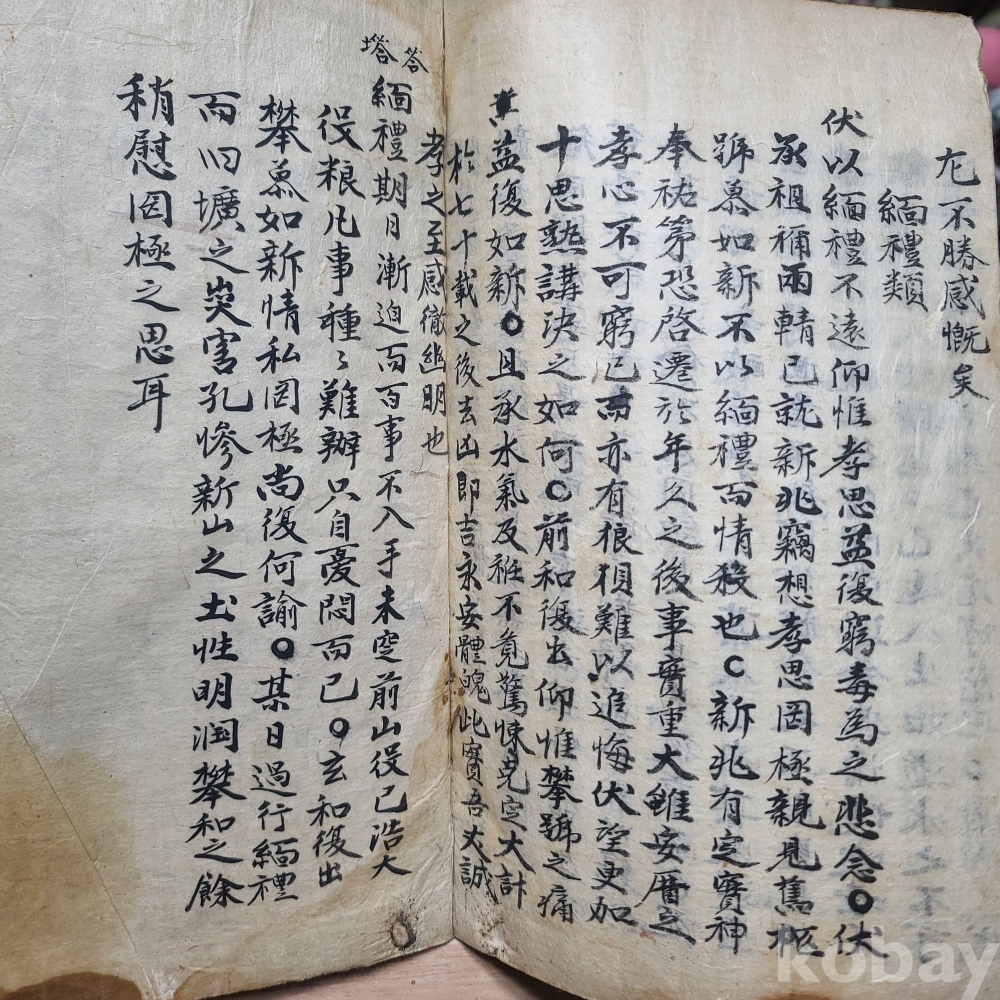 尤不勝感慨矣
緬禮類
伏以緬禮不遠仰惟孝思益復窮毒為之悲念○伏
承祖祢兩輤已就新兆竊想孝思罔極親見舊柩
號慕如新不以緬禮而情殺也○新兆有定實神
奉祐第恐啓遷於年久之後事實重大雖安厝之
孝心不可窮已而亦有狼狽難以追悔伏望更加
十思熟講決之如何○前和復出仰惟攀號之痛
益復如新○且承水氣及衽不覺驚悚克定大計
於七十載之後去凶即吉永安體魄此實吾大誠
孝之至感徹幽明也
答
塔
緬禮期日漸迫而百事不入手未定前山役已浩大
役粮凡事種〻難辦只自憂悶而已○玄和復出
攀慕如新情私罔極尚復何諭○某日過行緬禮
而旧壙之災害孔慘新山之土性明润攀和之餘
稍慰罔極之思耳
kobay